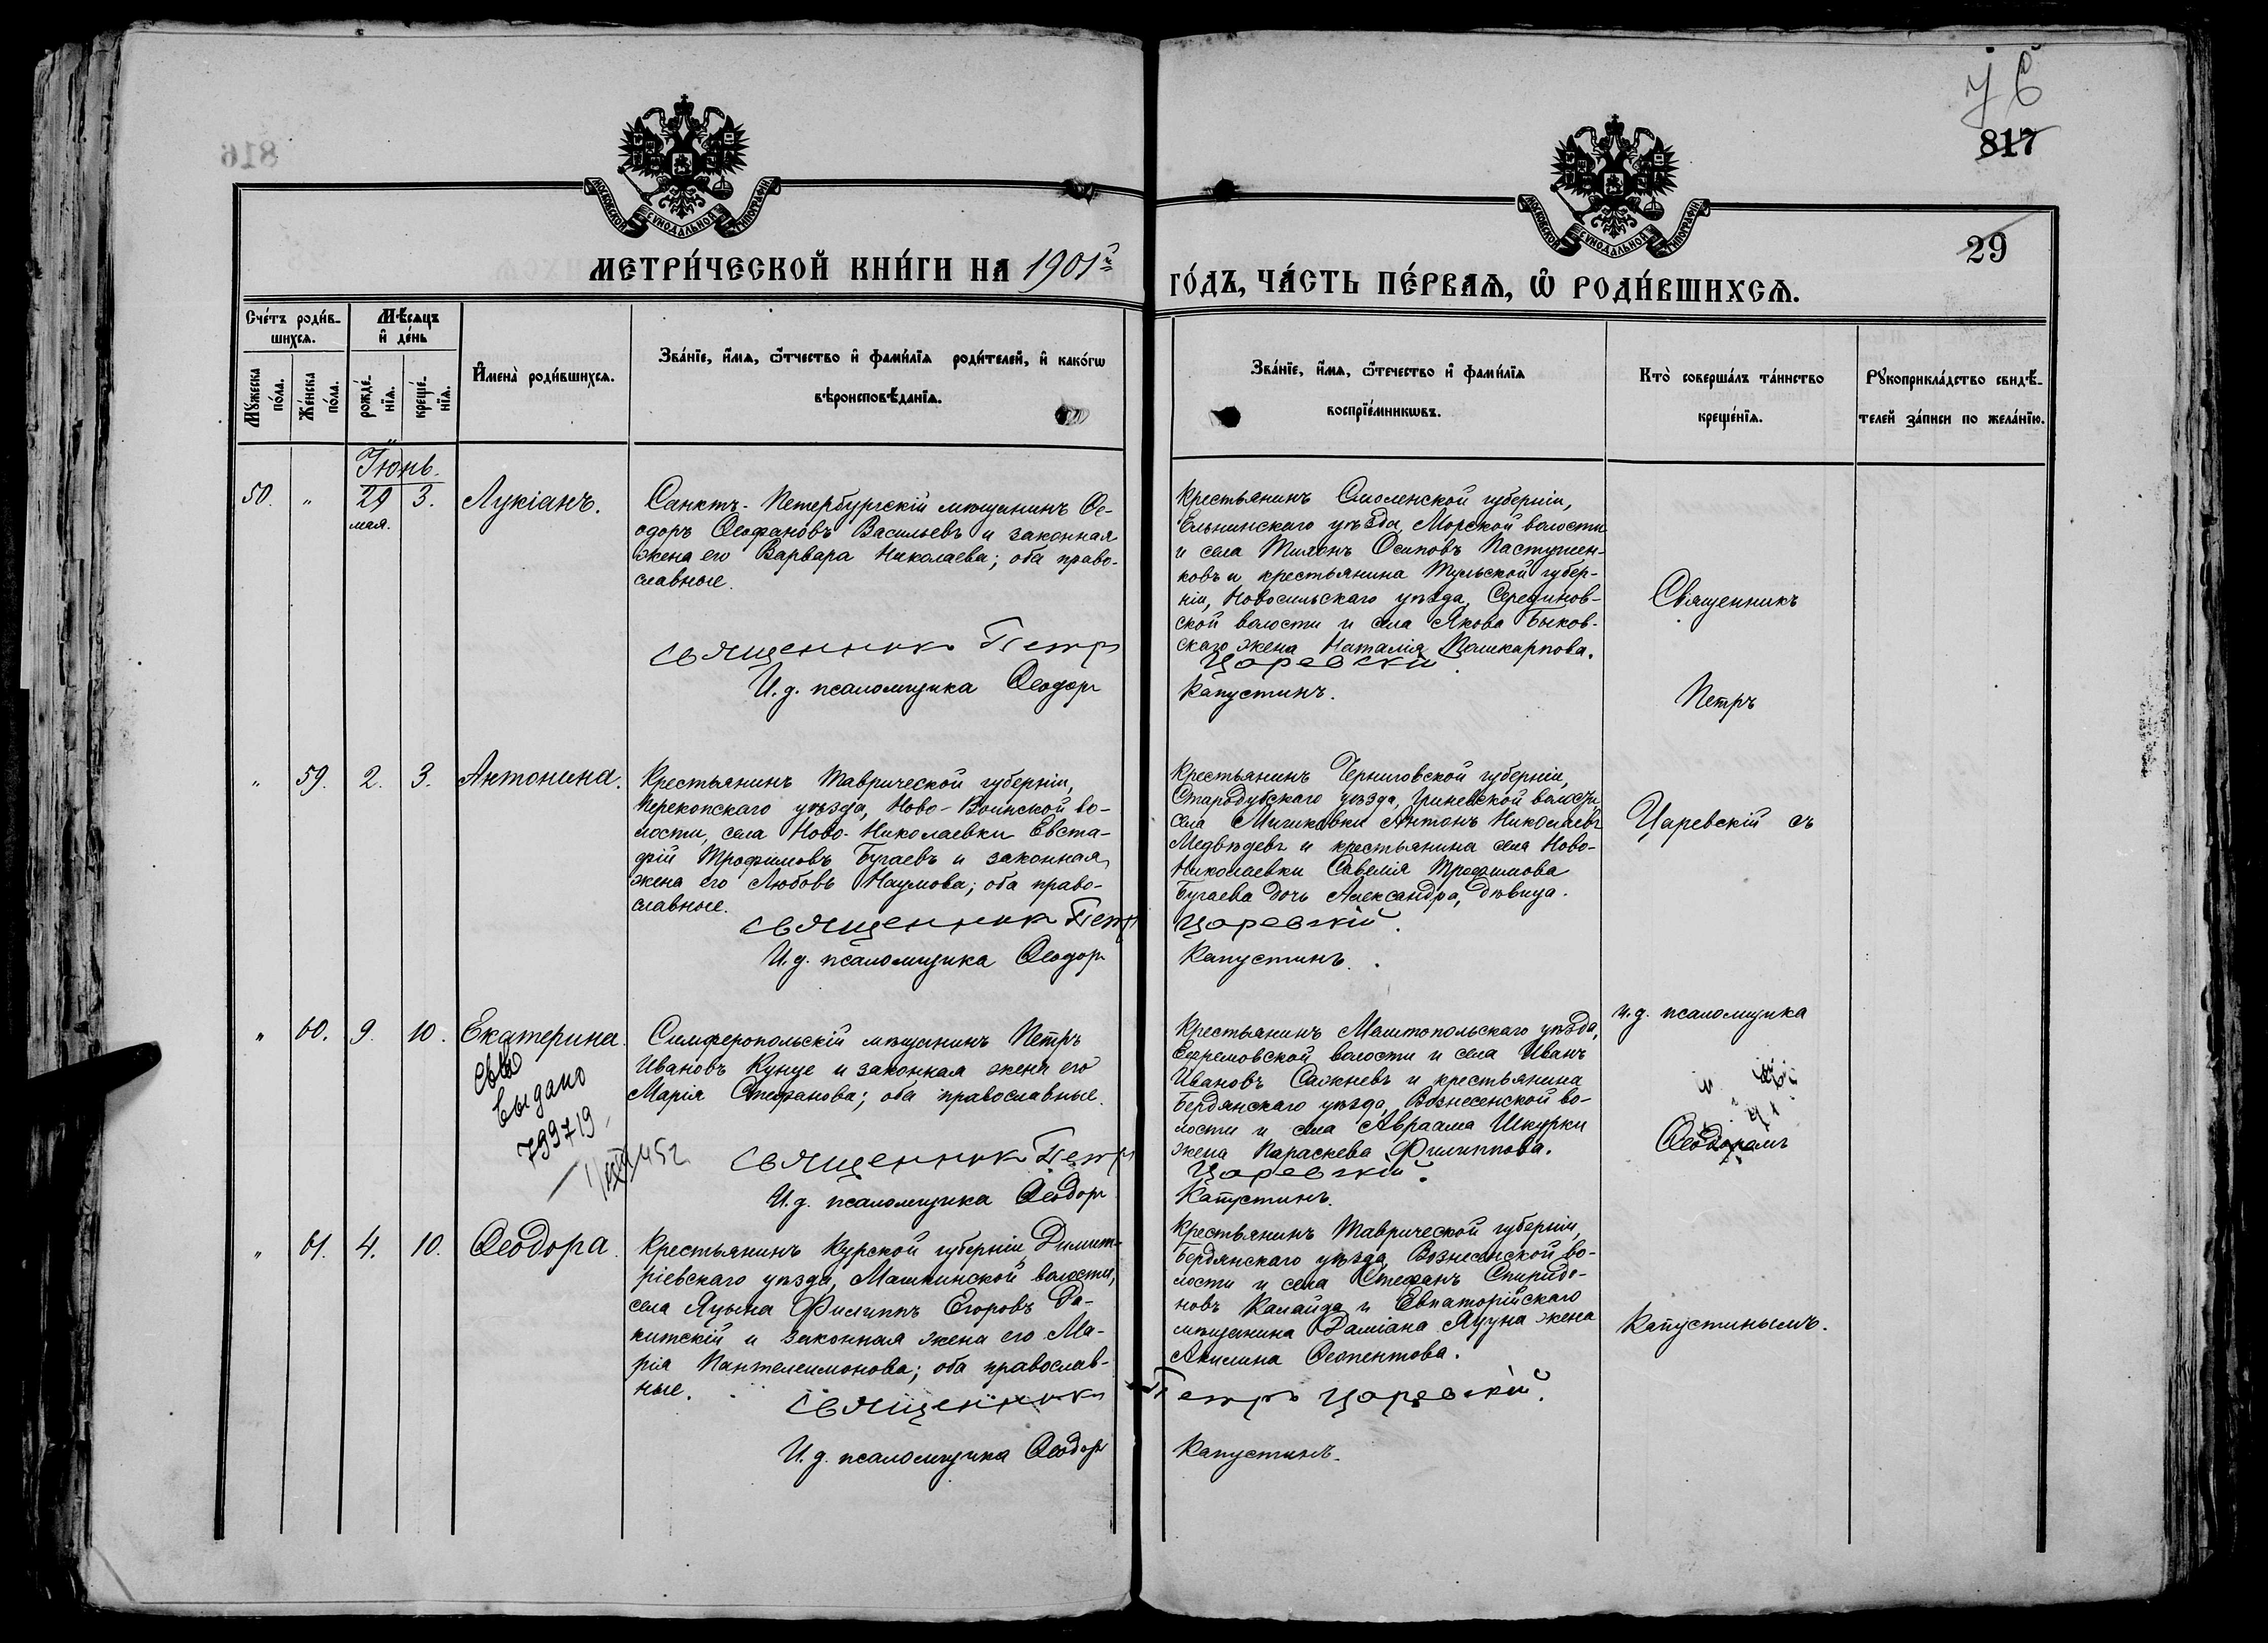 816
76
817
29
МОСКОВСКОЙ СѴНОДАЛЬНОЙ ТИПОГРАФІИ
МОСКОВСКОЙ СѴНОДАЛЬНОЙ ТИПОГРАФІИ
МЕТРИ́ЧЕСКОЙ КНИ́ГИ НА 1901й
ГО́ДЪ, ЧА́СТЬ ПЕ́РВАѦ, Ѡ РОДИ́ВШИХСѦ.
Сче́тъ роди́в-
шихсѧ.
Мѣ́сѧцъ
и҆ де́нь
Мꙋ́жеска
по́ла.
Же́нска
по́ла.
рожде́-
нїѧ.
креще́-
нїѧ.
И҆мена̀ роди́вшихсѧ.
Зва́нїе, и҆́мѧ, ѻ҆́тчество и҆ фами́лїѧ роди́телей, и҆ како́гѡ
вѣроисповѣ́данїѧ.
Зва́нїе, и҆́мѧ, ѻ҆́течество и҆ фами́лїѧ
воспрїе́мникѡвъ.
Кто̀ соверша́лъ та́инство
креще́нїѧ.
Рꙋкоприкла́дство свидѣ́-
телей за́писи по жела́нїю.
Іюнь.
50. " 29 3. Лукіанъ.
мая.
Санктъ-Петербургскій мѣщанинъ Ѳе-
одоръ Ѳеофановъ Васильевъ и законная
жена его Варвара Николаева; оба право-
славные.
Священникъ Петръ
И. д. псаломщика Ѳеодоръ
Крестьянинъ Смоленской губерніи,
Ельнинскаго уѣзда, Морской волости
и села Тихонъ Осиповъ Пастушен-
ковъ и крестьянина Тульской губер-
ніи, Новосильскаго уѣзда, Серединов-
ской волости и села Якова Быков-
скаго жена Наталія Поликарпова.
Царевскій.
Капустинъ.
Священникъ
Петръ
" 59. 2. 3. Антонина.
Крестьянинъ Таврической губерніи,
Перекопскаго уѣзда, Ново-Воинской во-
лости, села Ново-Николаевки Евста-
фій Трофимовъ Бугаевъ и законная
жена его Любовь Наумова; оба право-
славные.
Священникъ Петръ
И. д. псаломщика Ѳеодоръ
Крестьянинъ Черниговской губерніи,
Стародубскаго уѣзда, Гриневской волости,
села Антонъ Николаевъ
Медвѣдевъ и крестьянина села Ново-
Николаевки Савелія Трофимова
Бугаева дочь Александра, дѣвица.
Царевскій.
Капустинъ.
Царевскій съ
" 60. 9. 10. Екатерина.
выдано
799719
Симферопольскій мѣщанинъ Петръ
Ивановъ Кунце и законная жена его
Марія Стефанова; оба православные.
Священникъ Петръ
И. д. псаломщика Ѳеодоръ
Крестьянинъ Мелитопольскаго уѣзда,
Ефремовской волости и села Иванъ
Ивановъ Сажневъ и крестьянина
Бердянскаго уѣзда, Вознесенской во-
лости и села Авраама Шкурки
жена Параскева Филиппова.
Царевскій.
Капустинъ.
и. д. псаломщика
Ѳеодоромъ
" 61. 4. 10. Ѳеодора.
Крестьянинъ Курской губерніи, Димит-
ріевскаго уѣзда, Машкинской волости,
села Яцына Филиппъ Егоровъ Ра-
китскій и законная жена его Ма-
рія Пантелеимонова; оба православ-
ные.
Священникъ
И. д. псаломщика Ѳеодоръ
Крестьянинъ Таврической губерніи,
Бердянскаго уѣзда, Вознесенской во-
лости и села Стефанъ Спиридо-
новъ Калайда и Евпаторійскаго
мѣщанина Даміана Яцуна жена
Акилина Ѳеопентова.
Петръ Царевскій.
Капустинъ.
Капустинымъ.